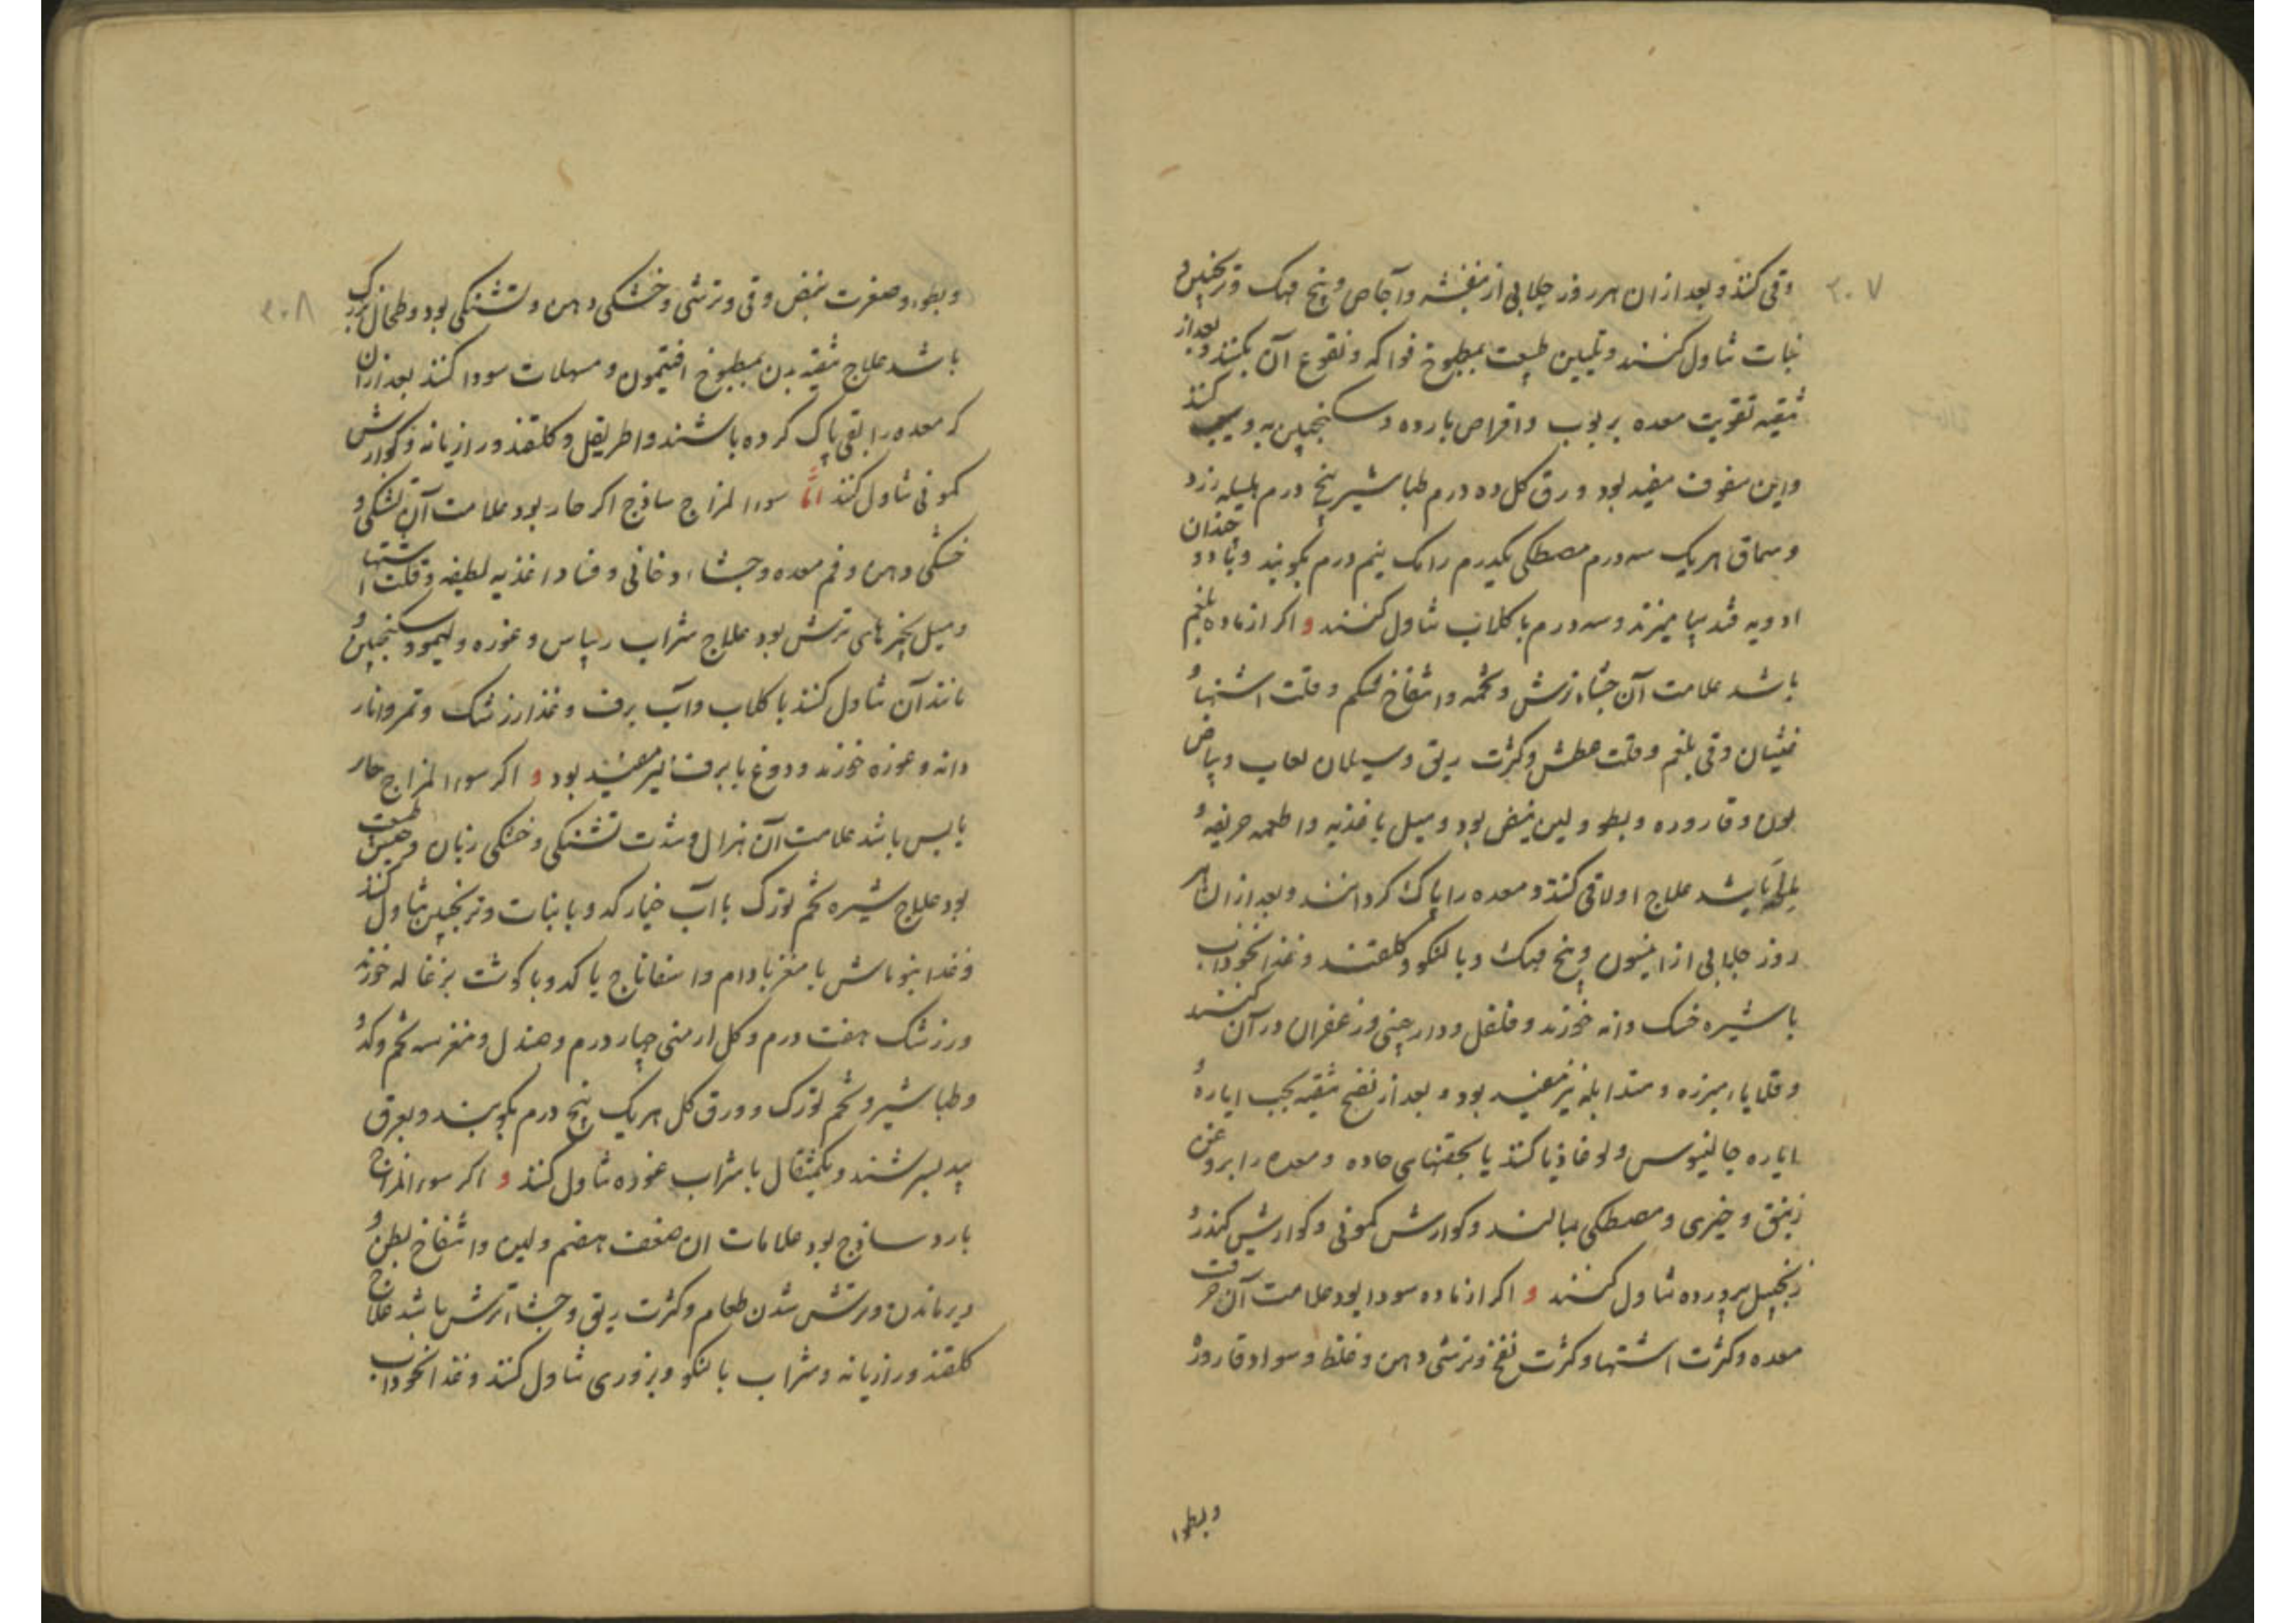 ۳۰۷
وقی کنند و بعد از ان هر روز جلابی از بنفشه و آجاص و بیخ مهک و ترنجبین و
نبات تناول کنند و تلیین طبیعت بمطبوخ فواکه و نقوع آن بکنند و بعد از
تنقیه تقویت معده بربوب و اقراص بارده و سکنجبین به و سیب کنند
و این سفوف مفید بود ورق کل ده درم طباشیر پنج درم هلیله زرد
و سماق هر یک سه درم مصطکی یکدرم رامک نیم درم بکوبند و با دو چندان
ادویه قند بیامیزند و سه درم با کلاب تناول کنند و اکر از ماده بلغم
باشد علامت آن جشاء ترش و تخمه و انتفاخ شکم و قلت اشتها و
غثیان و قی بلغم و قلت عطش و کثرت ریق و سیلان لعاب و بیاض
بول و قاروره و بطو و لین نبض بود و میل باغذیه و اطعمه حریفه و
باشد علاج اولا قی کنند و معده را پاک کردانند و بعد از ان هر
روز جلابی از انیسون و بیخ مهک و بالنکو و کلقند و غذا نخوداب
با شیره خسک دانه خورند و فلفل و دارچینی و زعفران در آن کنند
و قلایا مبزره و متدابله نیز مفید بود و بعد از نضج تنقیه بحب ایاره و
ایاره جالینوس و لوغاذیا کنند یا بحقنهای حاده و معده را بروغن
زنبق و خیری و مصطکی بمالند و کوارش کمونی و کوارش کندر و
زنجبیل پرورده تناول کنند و اکر از ماده سودا بود علامت آن حرقت
معده و کثرت اشتها و کثرت نفخ و ترشی دهن و غلظ و سواد قاروره
و بطوء
۳۰۸
و بطوء و صغرت نبض و قی و ترشی و خشکی دهن و تشنکی بود و طحال بزرک
باشد علاج تنقیه بدن بمطبوخ افتیمون و مسهلات سودا کنند بعد از آن
کر معده را بقی پاک کرده باشند و اطریفل و کلقند و رازیانه و کوارش
کمونی تناول کنند اما سوء المزاج ساذج اکر حار بود علامت آن تشنکی و
خشکی دهن و فم معده و جشاء دخانی و فساد اغذیه لطیفه و قلت اشتها
و میل بچیزهای ترش بود علاج شراب ریباس و غوره و لیمو و سکنجبین و
مانند آن تناول کنند با کلاب و آب برف و غذا زرشک و تمر و انار
دانه و غوره خورند و دوغ با برف نیز مفید بود و اکر سوء المزاج حار
یابس باشد علامت آن هزال و شدت تشنکی و خشکی زبان و حبس طبیعت
بود علاج شیره تخم تورک با آب خیار کدو با نبات و ترنجبین تناول کنند
و غذا بنو ماش با مغز بادام و اسفاناج یا کدو با کوشت بزغاله خورند
و زرشک هفت درم و کل ارمنی چهار درم و صندل و مغز سه تخم و کدو
و طباشیر و تخم تورک و ورق کل هر یک پنج درم بکوبند و بعرق
بید بسرشند و یکمثقال با شراب غوره تناول کنند و اکر سوء المزاج
بارد ساذج بود علامات ان ضعف هضم و لین و انتفاخ بطن و
دیر ماندن و ترش شدن طعام و کثرت ریق و جشاء ترش باشد علاج
کلقند و رازیانه و شراب بالنکو و بزوری تناول کنند و غذا نخوداب